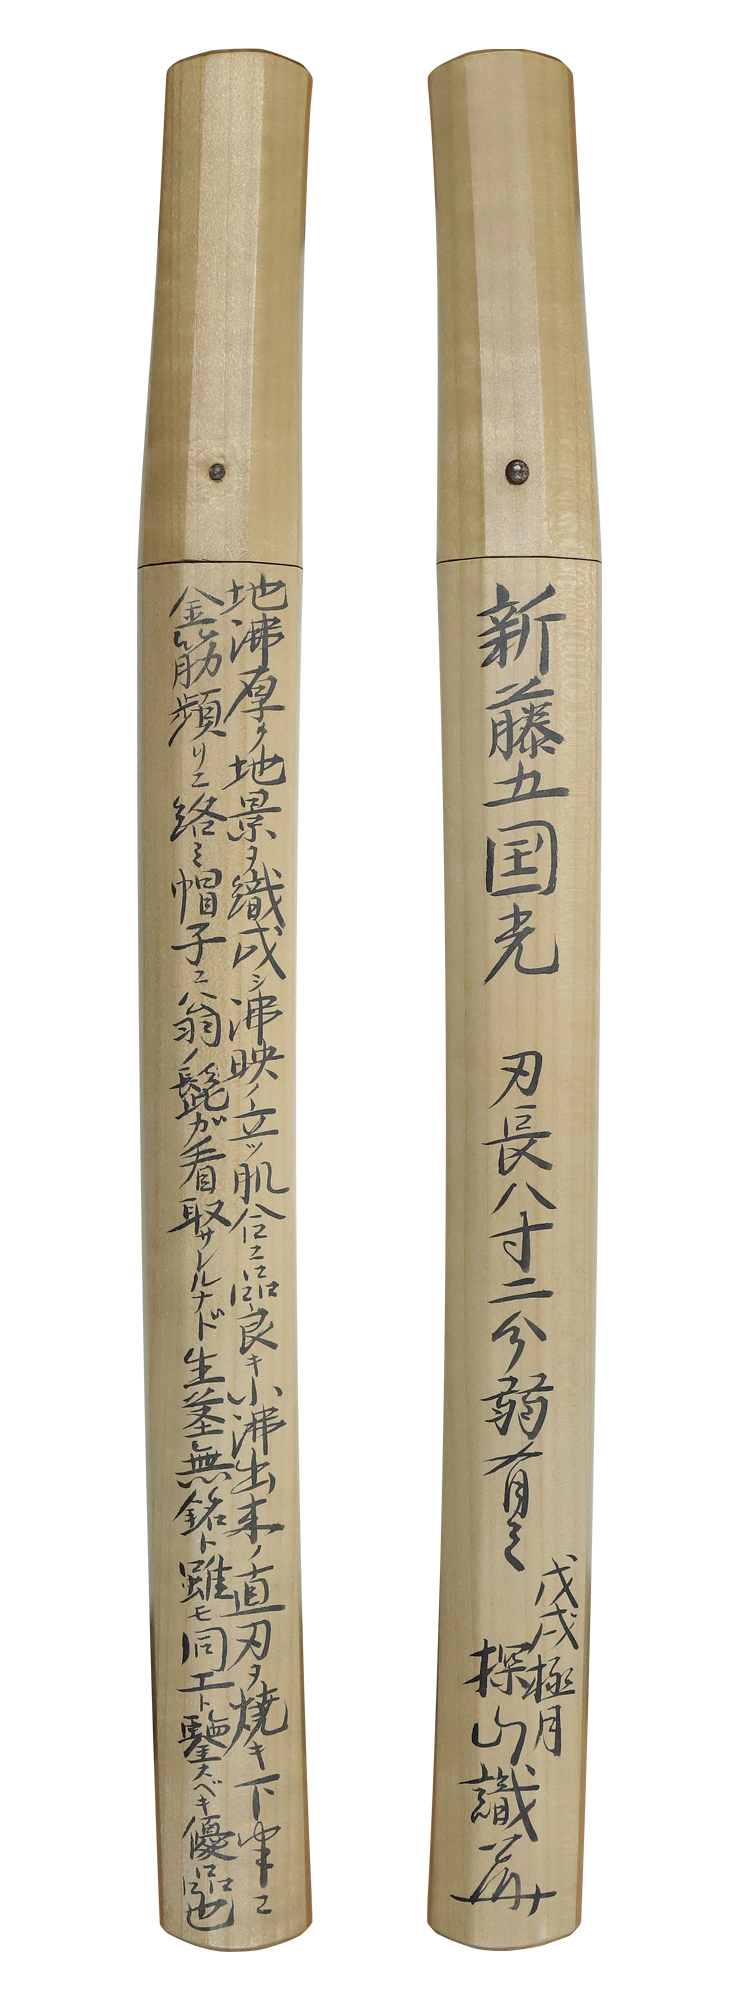 新藤五国光　刃長八寸二分弱有之
戊戌極月
探山識
地沸厚ク地景ヲ織成シ沸映ノ立ツ肌合ニ品良キ小沸出来ノ直刃ヲ焼キ下半ニ
金筋頻リニ絡ミ帽子ニ翁ノ髭ガ看取サレルナド生茎無銘ト雖モ同工ト鑒スベキ優品也